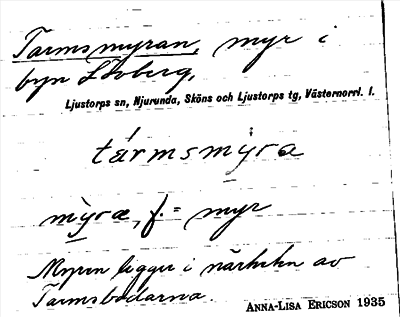 Tarmsmyran, myr i
byn Lövberg,
Ljustorps sn, Njurunda, Sköns och Ljustorps tg, Västernorrl. l.
tármsmỳra
mỳra, f. = myr
Myren ligger i närheten av
Tarmsbodarna.
ANNA-LISA ERICSON 1935